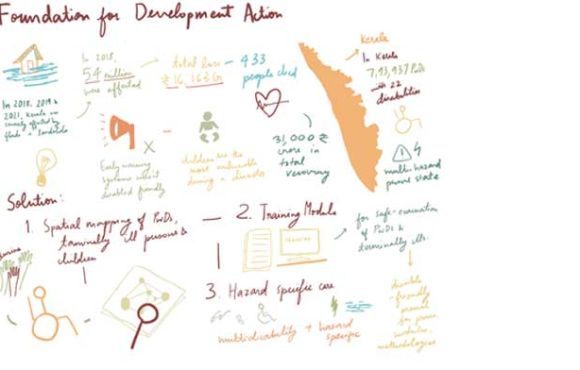 Foundation for Development Action
In 2018,
5.4 million
were affected
total loss
₹ 16,163 Cr
433
people died
Kerala
In Kerala
7,93,937 PwDs
with 22
disabilities
In 2018, 2019 &
2021, Kerala was
severely affected by
floods & landslides
Early warning
systems weren't
disabled friendly
children are the
most vulnerable
during a disaster
31,000 ₹
crore in
total
recovery
multi-hazard
prone state
Solution:
1. Spatial mapping of PwDs,
terminally ill persons &
children
2. Training Module
for safe-evacuation
of PwDs &
terminally ills.
3. Hazard specific care
multidisability + hazard
specific
disable
-friendly
methodologies